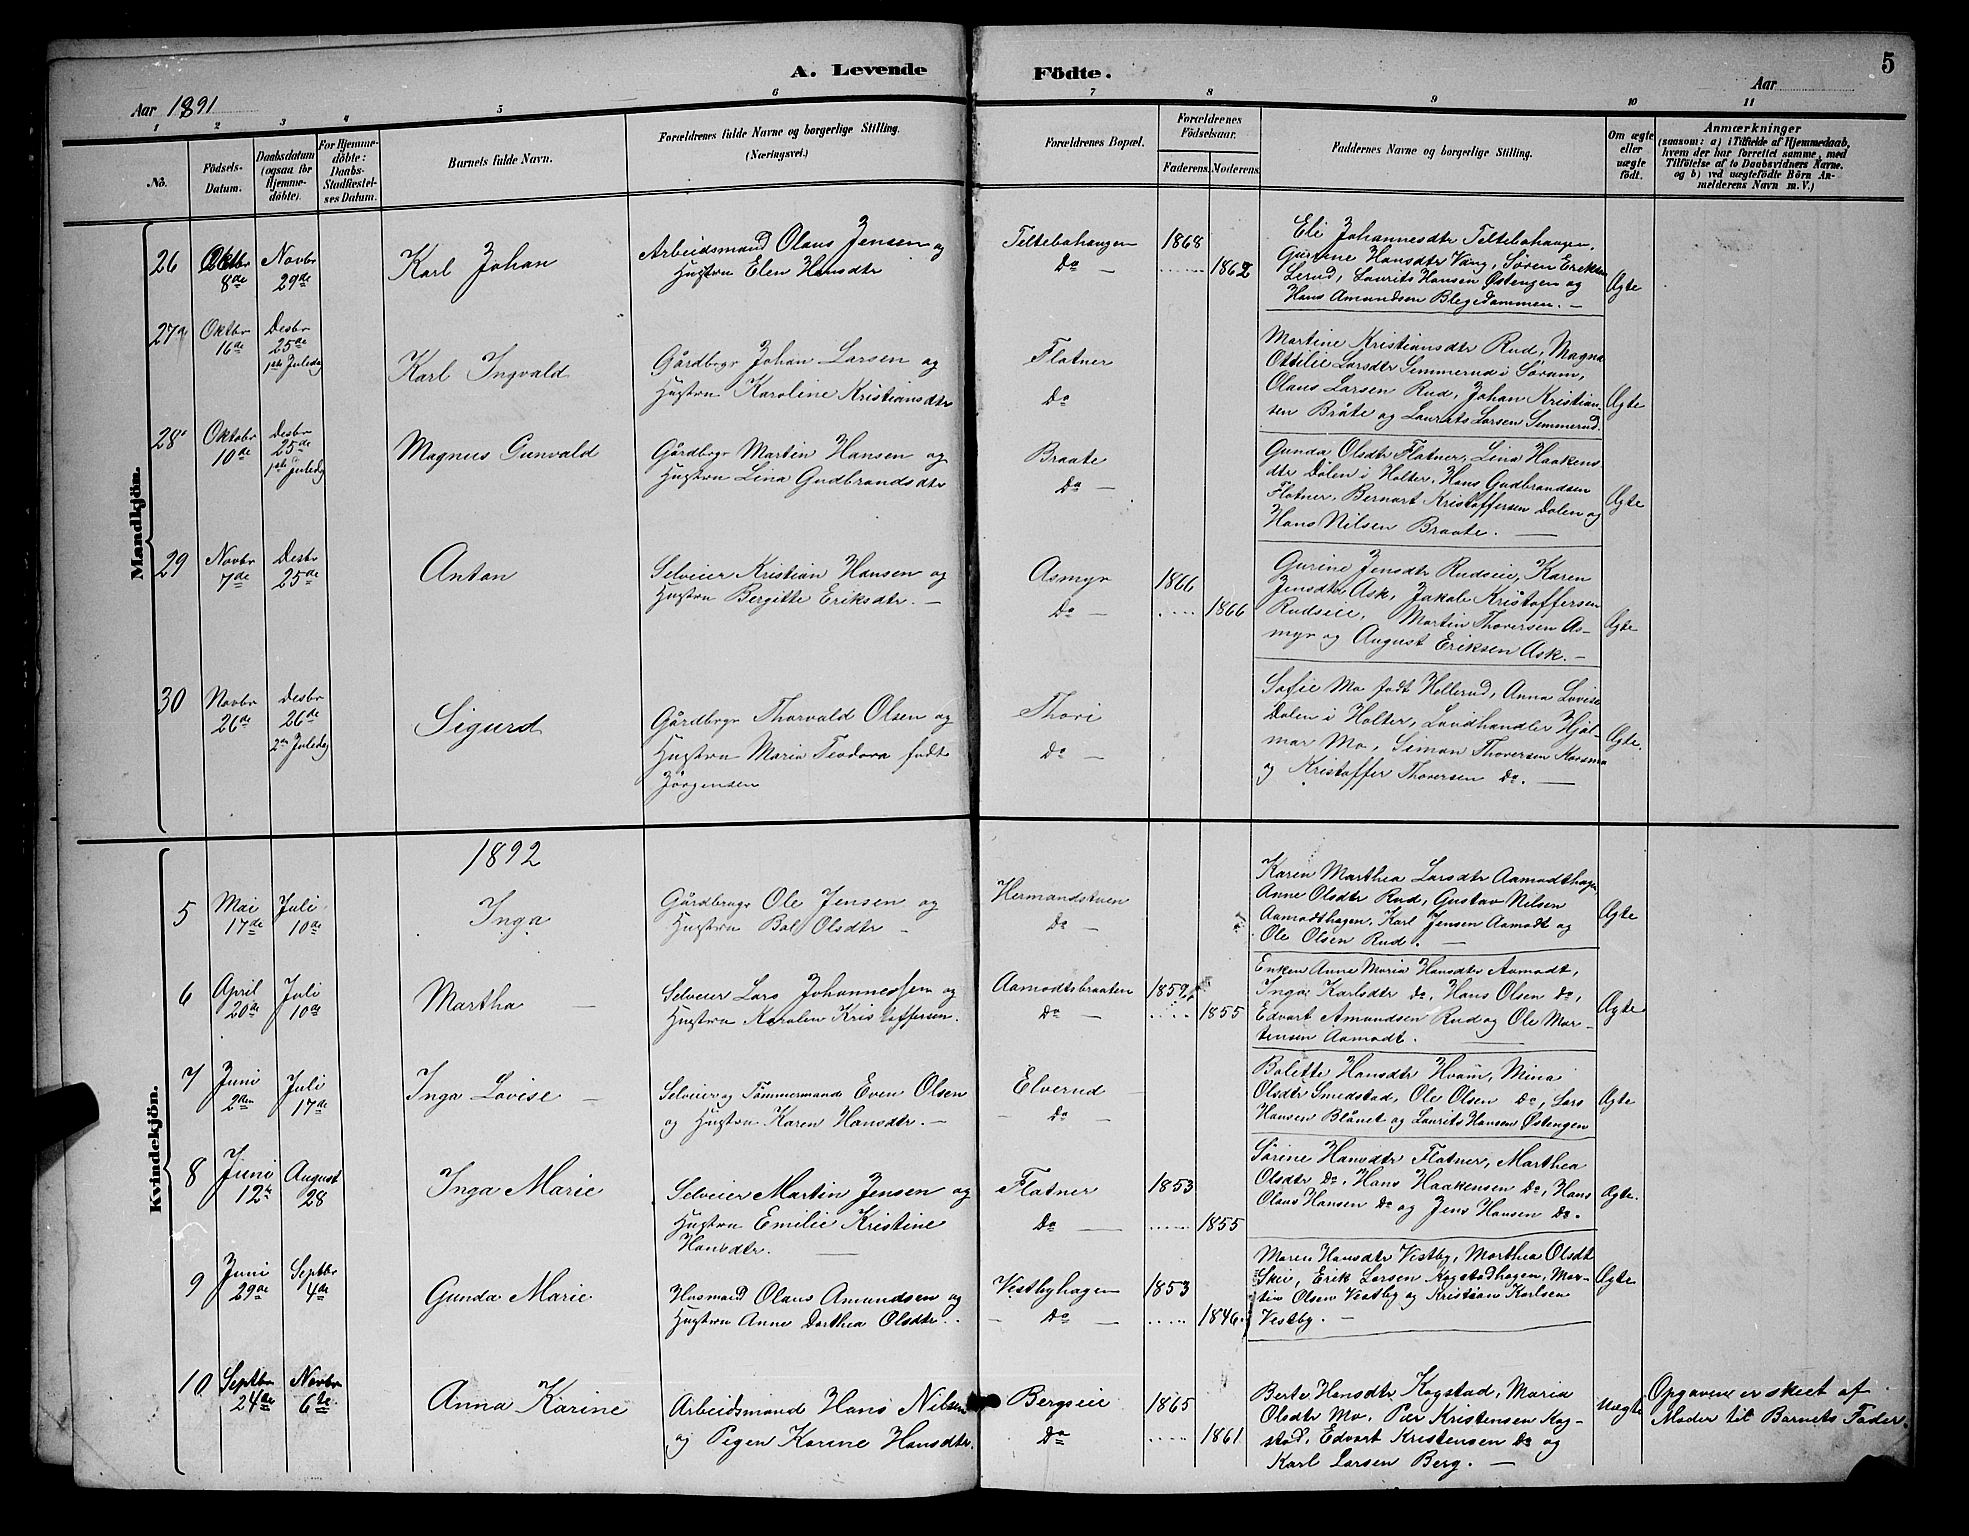 A. Levende Födte.
5
Aar 1891
Aar
1 2 3 4 5 6 7 8 9 10 11
No.
Födsels-
Datum.
Daabsdatum
(ogsaa for
Hjemme-
döbte).
For Hjemme-
döbte:
Daabs-
Stadfæstel-
ses Datum.
Barnets fulde Navn.
Forældrenes fulde Navne og borgerlige Stilling.
(Næringsvei.)
Forældrenes Bopæl.
Forældrenes
Födselsaar.
Faderens. Moderens.
Faddernes Navne og borgerlige Stilling.
Om ægte
eller
uægte
födt.
Anmærkninger
(saasom: a) i Tilfælde af Hjemmedaab,
hvem der har forrettet samme, med
Tilföielse af to Daabsvidners Navne.
og b) ved uægtefödte Börn An-
melderens Navn m. V.)
Mandkjön.
26
Oktbr
8de
Novbr
29de
Karl Johan
Arbeidsmand Olaus Jensen og
Hustru Elen Hansdtr
Teltebohaugen
Do —
1868
1862
Eli Johannesdtr Teltebohaugen,
Gurine Hansdtr Vang, Søren Eriksen
Lerud, Laurits Hansen Østengen og
Hans Amundsen Blegedammen. —
Ægte
27
Oktbr
16de
Desbr
25de
1ste Juledag
Karl Ingvald
Gårdbrgr Johan Larsen og
Hustru Karoline Kristiansdtr
Flatner
Do
Martine Kristiansdtr Rud, Magna
Ottilie Larsdtr Simmerud i Søram,
Olaus Larsen Rud, Johan Kristian-
sen Bråte og Laurats Larsen Simmerud.
Ægte
28
Oktobr
10de
Desbr
25de
1ste Juledag
Magnus Gunvald
Gårdbrgr Martin Hansen og
Hustru Lina Gudbrandsdtr
Braate
Do —
Gunda Olsdtr Flatner, Lina Haakens
dtr Dalen i Holter, Hans Gudbrandsen
Flatner, Bernart Kristoffersen Dalen og
Hans Nilsen Braate. —
Ægte
29
Novbr
7de
Desbr
25de
Anton
Selveier Kristian Hansen og
Hustru Bergitte Eriksdtr. —
Asmyr
Do —
1866
1866
Gurine Jensdtr Rudseie, Karen
Jensdtr Ask, Jakob Kristoffersen
Rudseie, Martin Thoversen As-
myr og August Eriksen Ask. —
Ægte
30
Novbr
26de
Desbr
26de
2en Juledag
Sigurd
Gårdbrgr Thorvald Olsen og
Hustru Maria Teodora født
Jörgensen
Thori
Do —
Sofie Mo født Hellerud, Anna Lovise
Dalen i Holter, Landhandler Hjal-
mar Mo, Simon Thoversen Korsmo
og Kristoffer Thoversen Do. —
Ægte.
1892
Kvindekjön.
5
Mai
17de
Juli
10de
Inga
Gårdbrugr Ole Jensen og
Hustru Bol Olsdtr —
Hermandstuen
Do —
Karen Marthea Larsdtr Aamodthagen
Anne Olsdtr Rud, Gustav Nilsen
Aamodthagen, Karl Jensen Aamodt og
Ole Olsen Rud. —
Ægte
6
April
20de
Juli
10de
Martha —
Selveier Lars Johannessen og
Hustru Karolen Kristoffersen.
Aamodtsbraaten
Do —
1859
1855
Enken Anne Maria Hansdtr Aamodt,
Inga Karlsdtr do, Hans Olsen do,
Edvart Amundsen Rud og Ole Mar-
tensen Aamodt.
Ægte
7
Juni
2den
Juli
17de
Inga Lovise —
Selveier og Tømmermand Even Olsen
og Hustru Karen Hansdtr. —
Elverud —
Do —
Bolette Hansdtr Hvam, Mina
Olsdtr Smedstad, Ole Olsen Do, Lars
Hansen Blånet og Laurits Hansen Østengen
Ægte
8
Juni
12te
August
28
Inga Marie
Selveier Martin Jensen og
Hustru Emilie Kristine
Hansdtr. —
Flatner
Do —
1853
1855
Sörine Hansdtr Flatner, Marthea
Olsdtr Do, Hans Haakensen Do, Hans
Olaus Hansen Do og Jens Hansen Do.
Ægte.
9
Juni
29de
Septbr
4de
Gunda Marie
Husmand Olaus Amundsen og
Hustru Anne Dorthea Olsdtr.
Vestbyhagen
Do —
1853
1846.
Maren Hansdtr Vestby, Marthea Olsdt
Skei, Erik Larsen Kogstadhagen, Mar-
tin Olsen Vestby og Kristian Karlsen
Vestby. —
Ægte
10
Septbr
24de
Novbr
6te
Anna Karine
Arbeidsmand Hans Nilsen
og Pigen Karine Hansdtr.
Bergseie
Do
1865
1861
Berte Hansdtr Kogstad, Maria
Olsdtr Mo, Per Kristensen Kog-
stad, Edvart Kristensen Do og
Karl Larsen Berg. —
Uægte
Opgavene er skeet af
Moder til Barnets Fader.